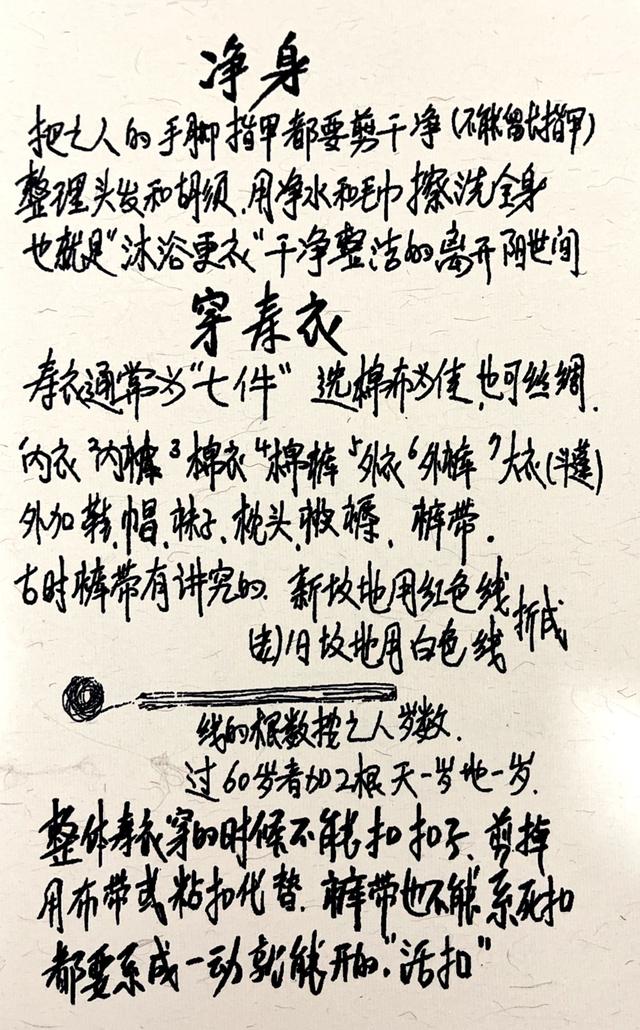 净身
把亡人的手脚指甲都要剪干净(不能留长指甲)
整理头发和胡须.用净水和毛巾擦洗全身
也就是"沐浴更衣"干净整洁的离开阴世间
穿寿衣
寿衣通常为"七件" 选棉布为佳,也可丝绸.
1内衣 2内裤 3棉衣 4棉裤 5外衣 6外裤 7大衣(斗蓬)
外加鞋,帽、袜子、枕头、被褥、裤带.
古时裤带有讲究的.新坟地用红色线
(去)旧坟地用白色线 折成
线的根数按亡人岁数.
过60岁者加2根 天一岁地一岁.
整体寿衣穿的时候不能扣扣子、剪掉
用布带或粘扣代替.裤带也不能系死扣
都要系成一动就能开的"活扣"